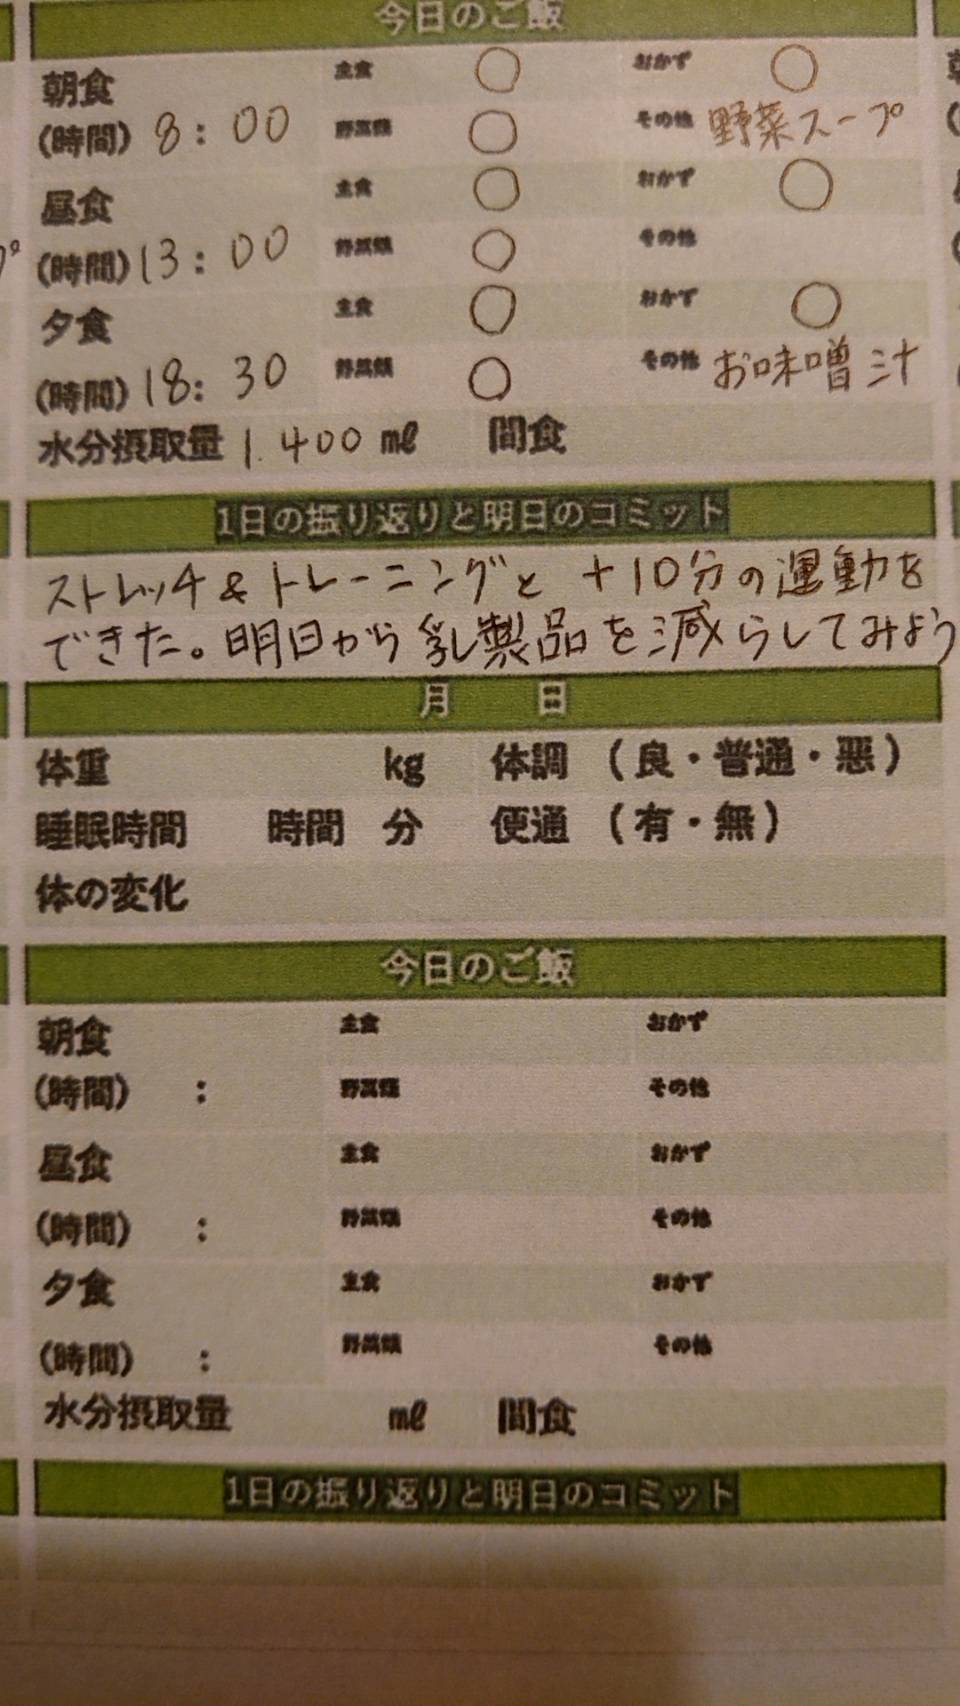 今日のご飯
朝食 主食 ○ おかず ○
(時間) 8:00 野菜類 ○ その他 野菜スープ
昼食 主食 ○ おかず ○
(時間) 13:00 野菜類 ○ その他
夕食 主食 ○ おかず ○
(時間) 18:30 野菜類 ○ その他 お味噌汁
水分摂取量 1.400 ㎖ 間食
1日の振り返りと明日のコミット
ストレッチ&トレーニングと +10分の運動を
できた。明日から乳製品を減らしてみよう
月 日
体重 kg 体調 (良・普通・悪)
睡眠時間 時間 分 便通 (有・無)
体の変化
今日のご飯
朝食 主食 おかず
(時間) : 野菜類 その他
昼食 主食 おかず
(時間) : 野菜類 その他
夕食 主食 おかず
(時間) : 野菜類 その他
水分摂取量 ㎖ 間食
1日の振り返りと明日のコミット